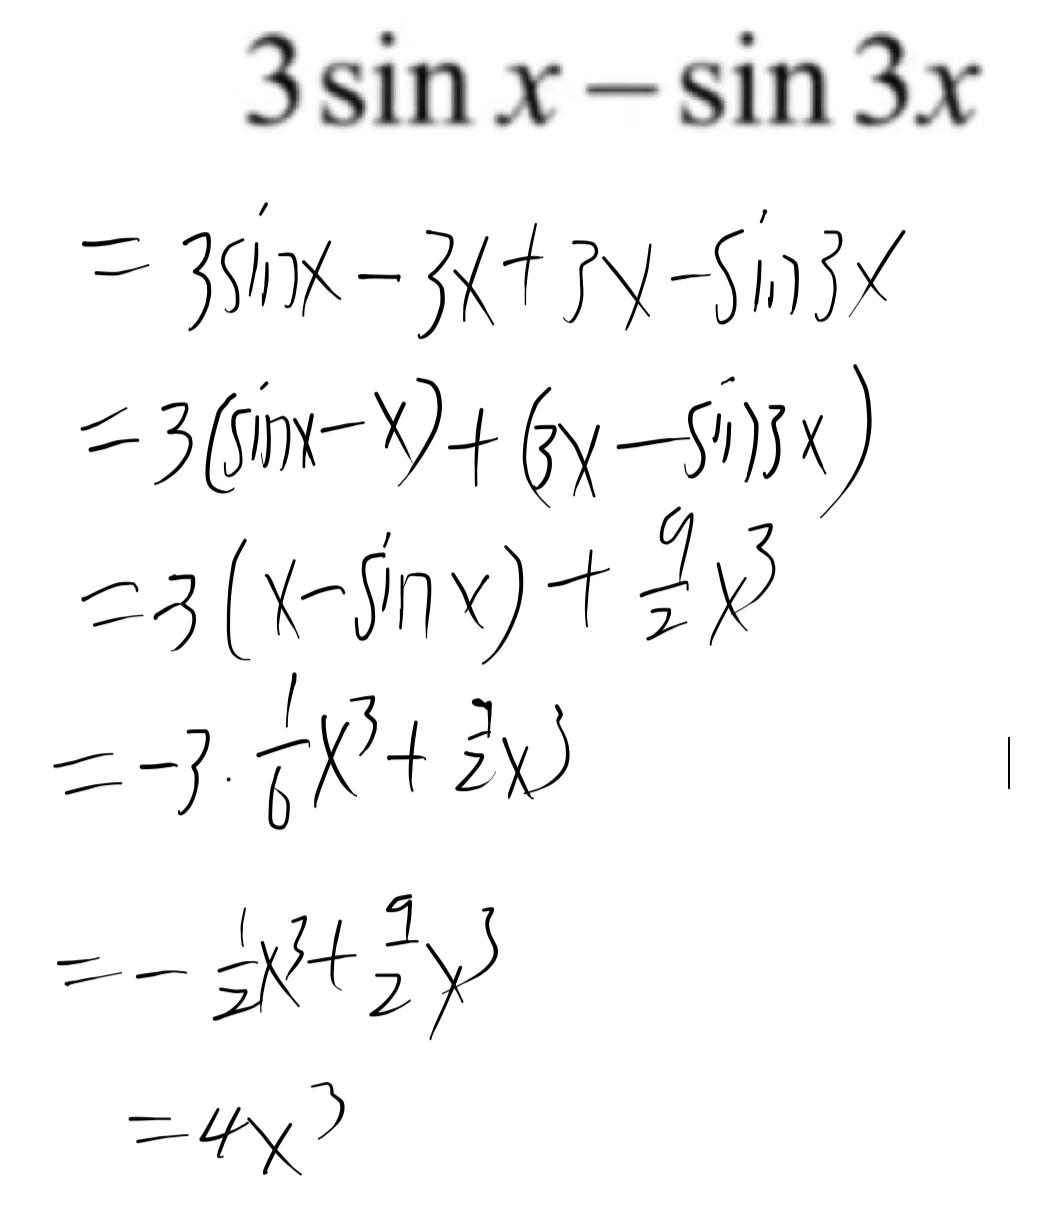 3 sin x − sin 3x
= 3sinx − 3x + 3x − sin3x
= 3(sinx − x) + (3x − sin3x)
= 3(x − sinx) + 9/2 x³
= −3 · 1/6 x³ + 9/2 x³
= − 1/2 x³ + 9/2 x³
= 4x³